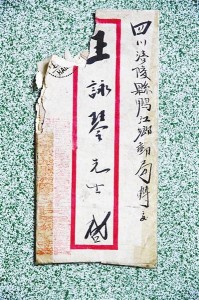 四川涪陵縣鴨江鄉郵局轉交
王詠琴先生啟